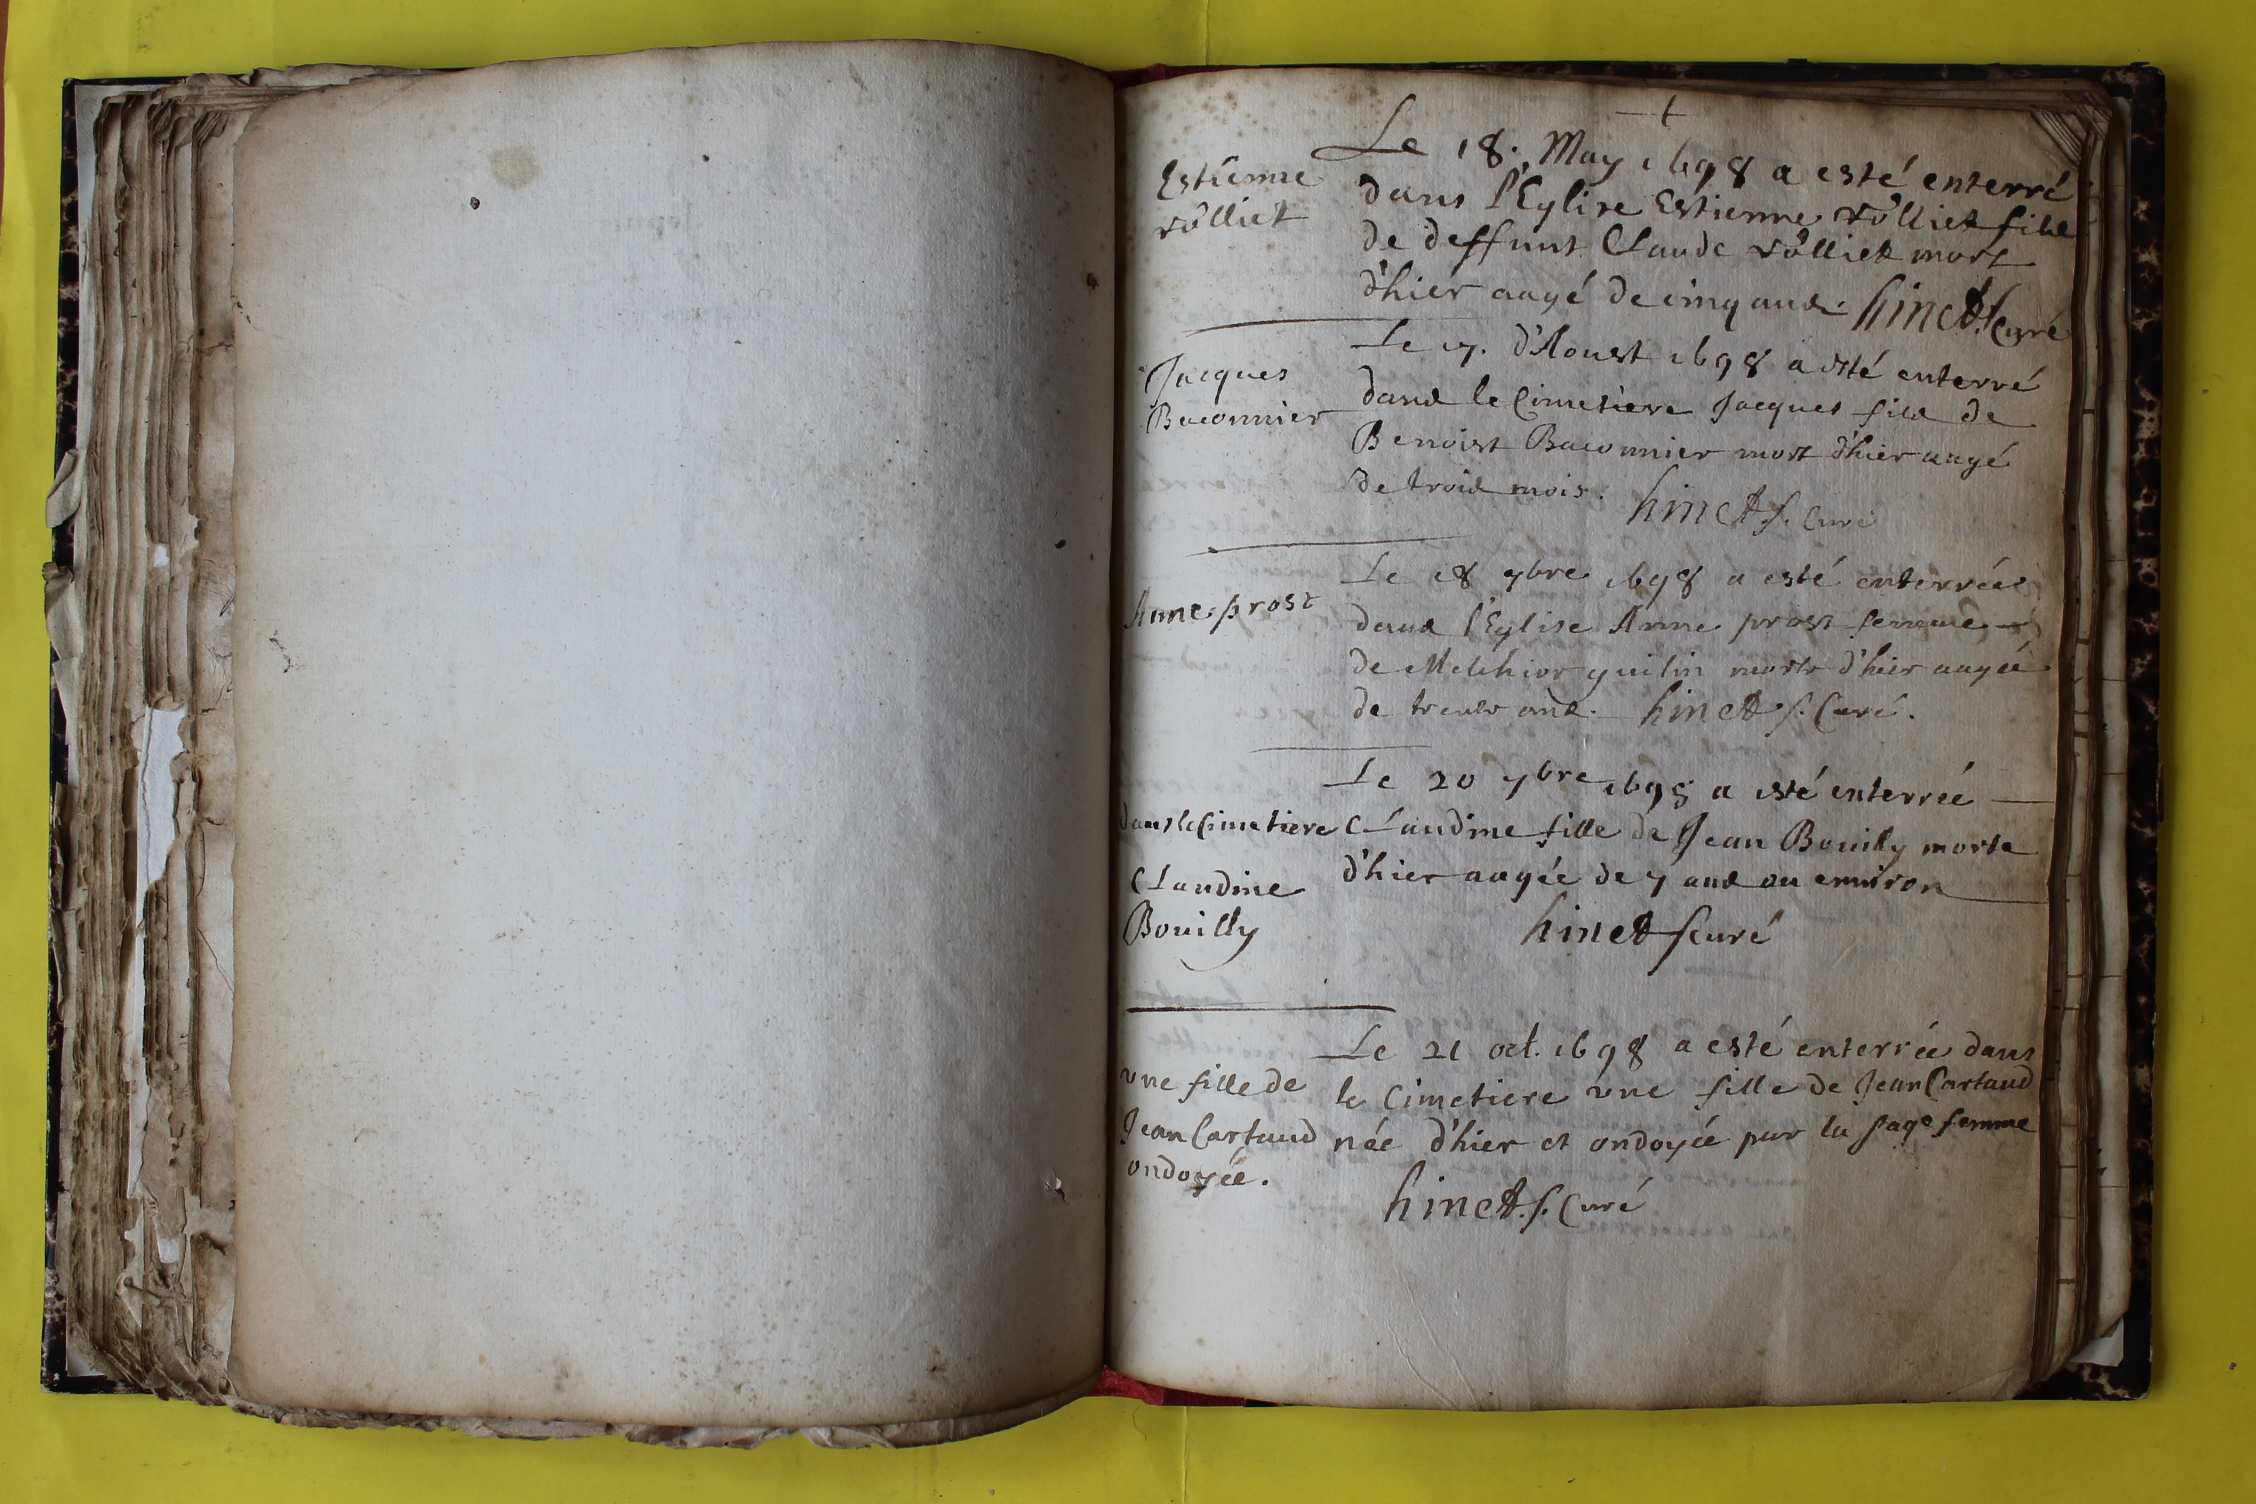 Estienne
rolliet
Le 18. May 1698 a esté enterré
dans l'Eglise Estienne rolliet fils
de deffunt Claude rolliet mort
d'hier aagé de cinq ans. hinet f. Curé
Jacques
Baconnier
Le 17. d'Aoust 1698 a esté enterré
dans le Cimetiere Jacques fils de
Benoist Baconnier mort d'hier aagé
de trois mois.
hinet f. Curé
Anne prost
Le 18 7bre 1698 a esté enterrée
dans l'Eglise Anne prost femme
de Melchior guilin morte d'hier aagée
de trente ans. hinet f. Curé.
Le 20 7bre 1698 a esté enterrée
dans le Cimetiere Claudine fille de Jean Bouilly morte
d'hier aagée de 7 ans ou environ
Claudine
Bouilly
hinet f curé
Le 21 oct. 1698 a esté enterrée dans
le Cimetiere vne fille de Jean Cartaud
née d'hier et ondoyée par la sage femme
vne fille de
Jean Cartaud
ondoyée.
hinet. f. Curé